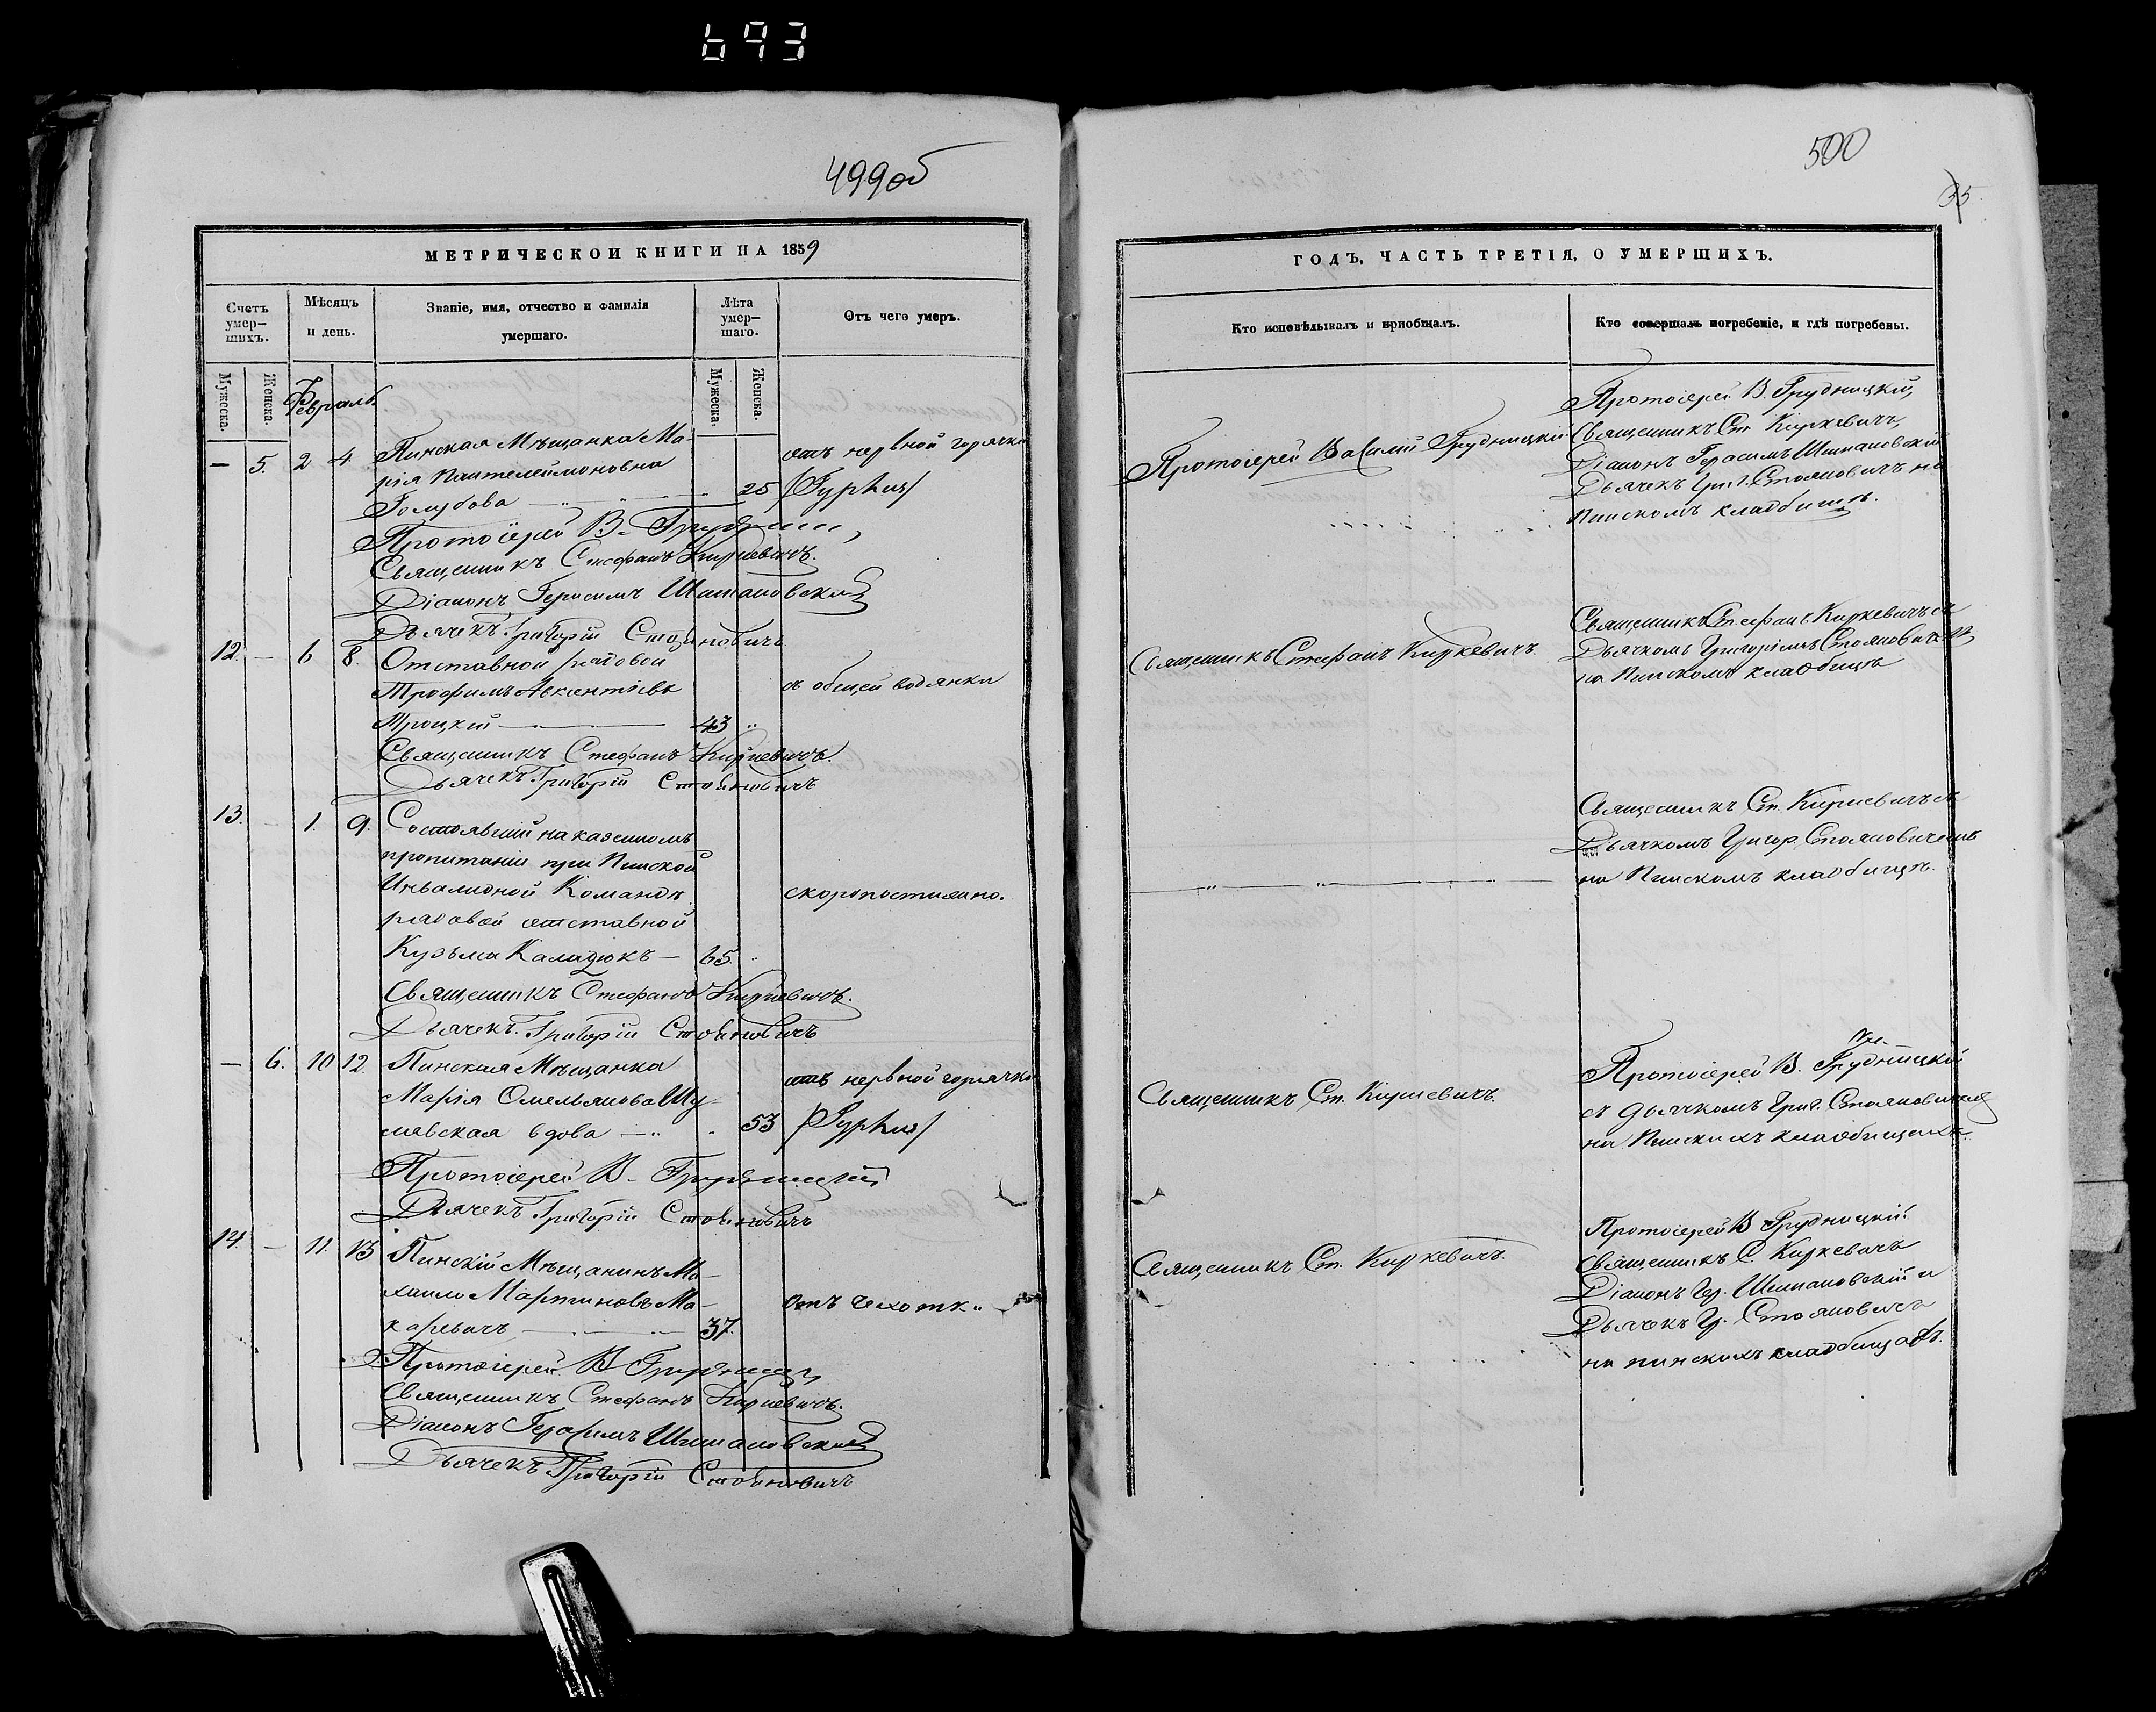 693
499об
МЕТРИЧЕСКОИ КНИГИ НА 1859
Счетъ умер—шихъ.
Мѣсяцъ и день.
Званіе, имя, отчество и фамилія умершаго.
Лѣта умер—шаго.
Отъ чего умеръ.
Мужеска.
Женска.
Мужеска.
Женска.
Февраль
— 5. 2 4 Пинская Мѣщанка Ма-
рія Пантелеймоновна
Голубова 25
отъ нервной горячки
/Typhus/
Протоіерей В. Грудницкій,
Священникъ Стефанъ Киркевичъ.
Діаконъ Герасимъ Шимановскій
Дьячекъ Григорій Стояновичъ
12. — 6 8. Отставной рядовой
Трофимъ Авксентіевъ
Троцкій — 43 "
съ общей водянки
Священникъ Стефанъ Киркевичъ.
Дьячекъ Григорій Стояновичъ
13. — 1. 9. Состоявшій на казенномъ
пропитаніи при Пинской
Инвалидной Командѣ
рядовой отставной
Кузьма — 65. "
скоропостижно.
Священникъ Стефанъ Киркевичъ.
Дьячекъ Григорій Стояновичъ
— 6. 10 12. Пинская Мѣщанка
Марія Омельянова Шу-
лявская вдова — " 53
отъ нервной горячки
/Typhus/
Протоіерей В. Грудницкій
Дьячекъ Григорій Стояновичъ
14. — 11. 13 Пинскій Мѣщанинъ Ми-
хаилъ Мартиновъ Ма-
каревичъ 37.
отъ чахотки
Протоіерей В Грудницкій
Священникъ Стефанъ Киркевичъ.
Діаконъ Герасимъ Шимановскій
Дьячекъ Григорій Стояновичъ
500
35
ГОДЪ, ЧАСТЬ ТРЕТІЯ, О УМЕРШИХЪ.
Кто исповѣдывалъ и пріобщалъ.
Кто совершалъ погребеніе, и гдѣ погребены.
Протоіерей Василій Грудницкій
Протоіерей В. Грудницкій,
Священникъ Ст Киркевичъ,
Діаконъ Герасимъ Шимановскій
Дьячекъ Григ. Стояновичъ на
Пинскомъ кладбищѣ.
Священникъ Стефанъ Киркевичъ.
Священникъ Стефанъ Киркевичъ съ
Дьячкомъ Григоріемъ Стояновичемъ
на Пинскомъ кладбищѣ
Священникъ Ст. Киркевичъ съ
Дьячкомъ Григор. Стояновичемъ
на Пинскомъ кладбищѣ.
Священникъ Ст. Киркевичъ.
Протоіерей В. Грудницкій
съ дьячкомъ Григ. Стояновичемъ
на Пинскихъ кладбищахъ.
Священникъ Ст. Киркевичъ.
Протоіерей В Грудницкій
Священникъ С. Киркевичъ
Діаконъ Гер. Шимановскій и
Дьячекъ Гр. Стояновичъ
на пинскихъ кладбищахъ.